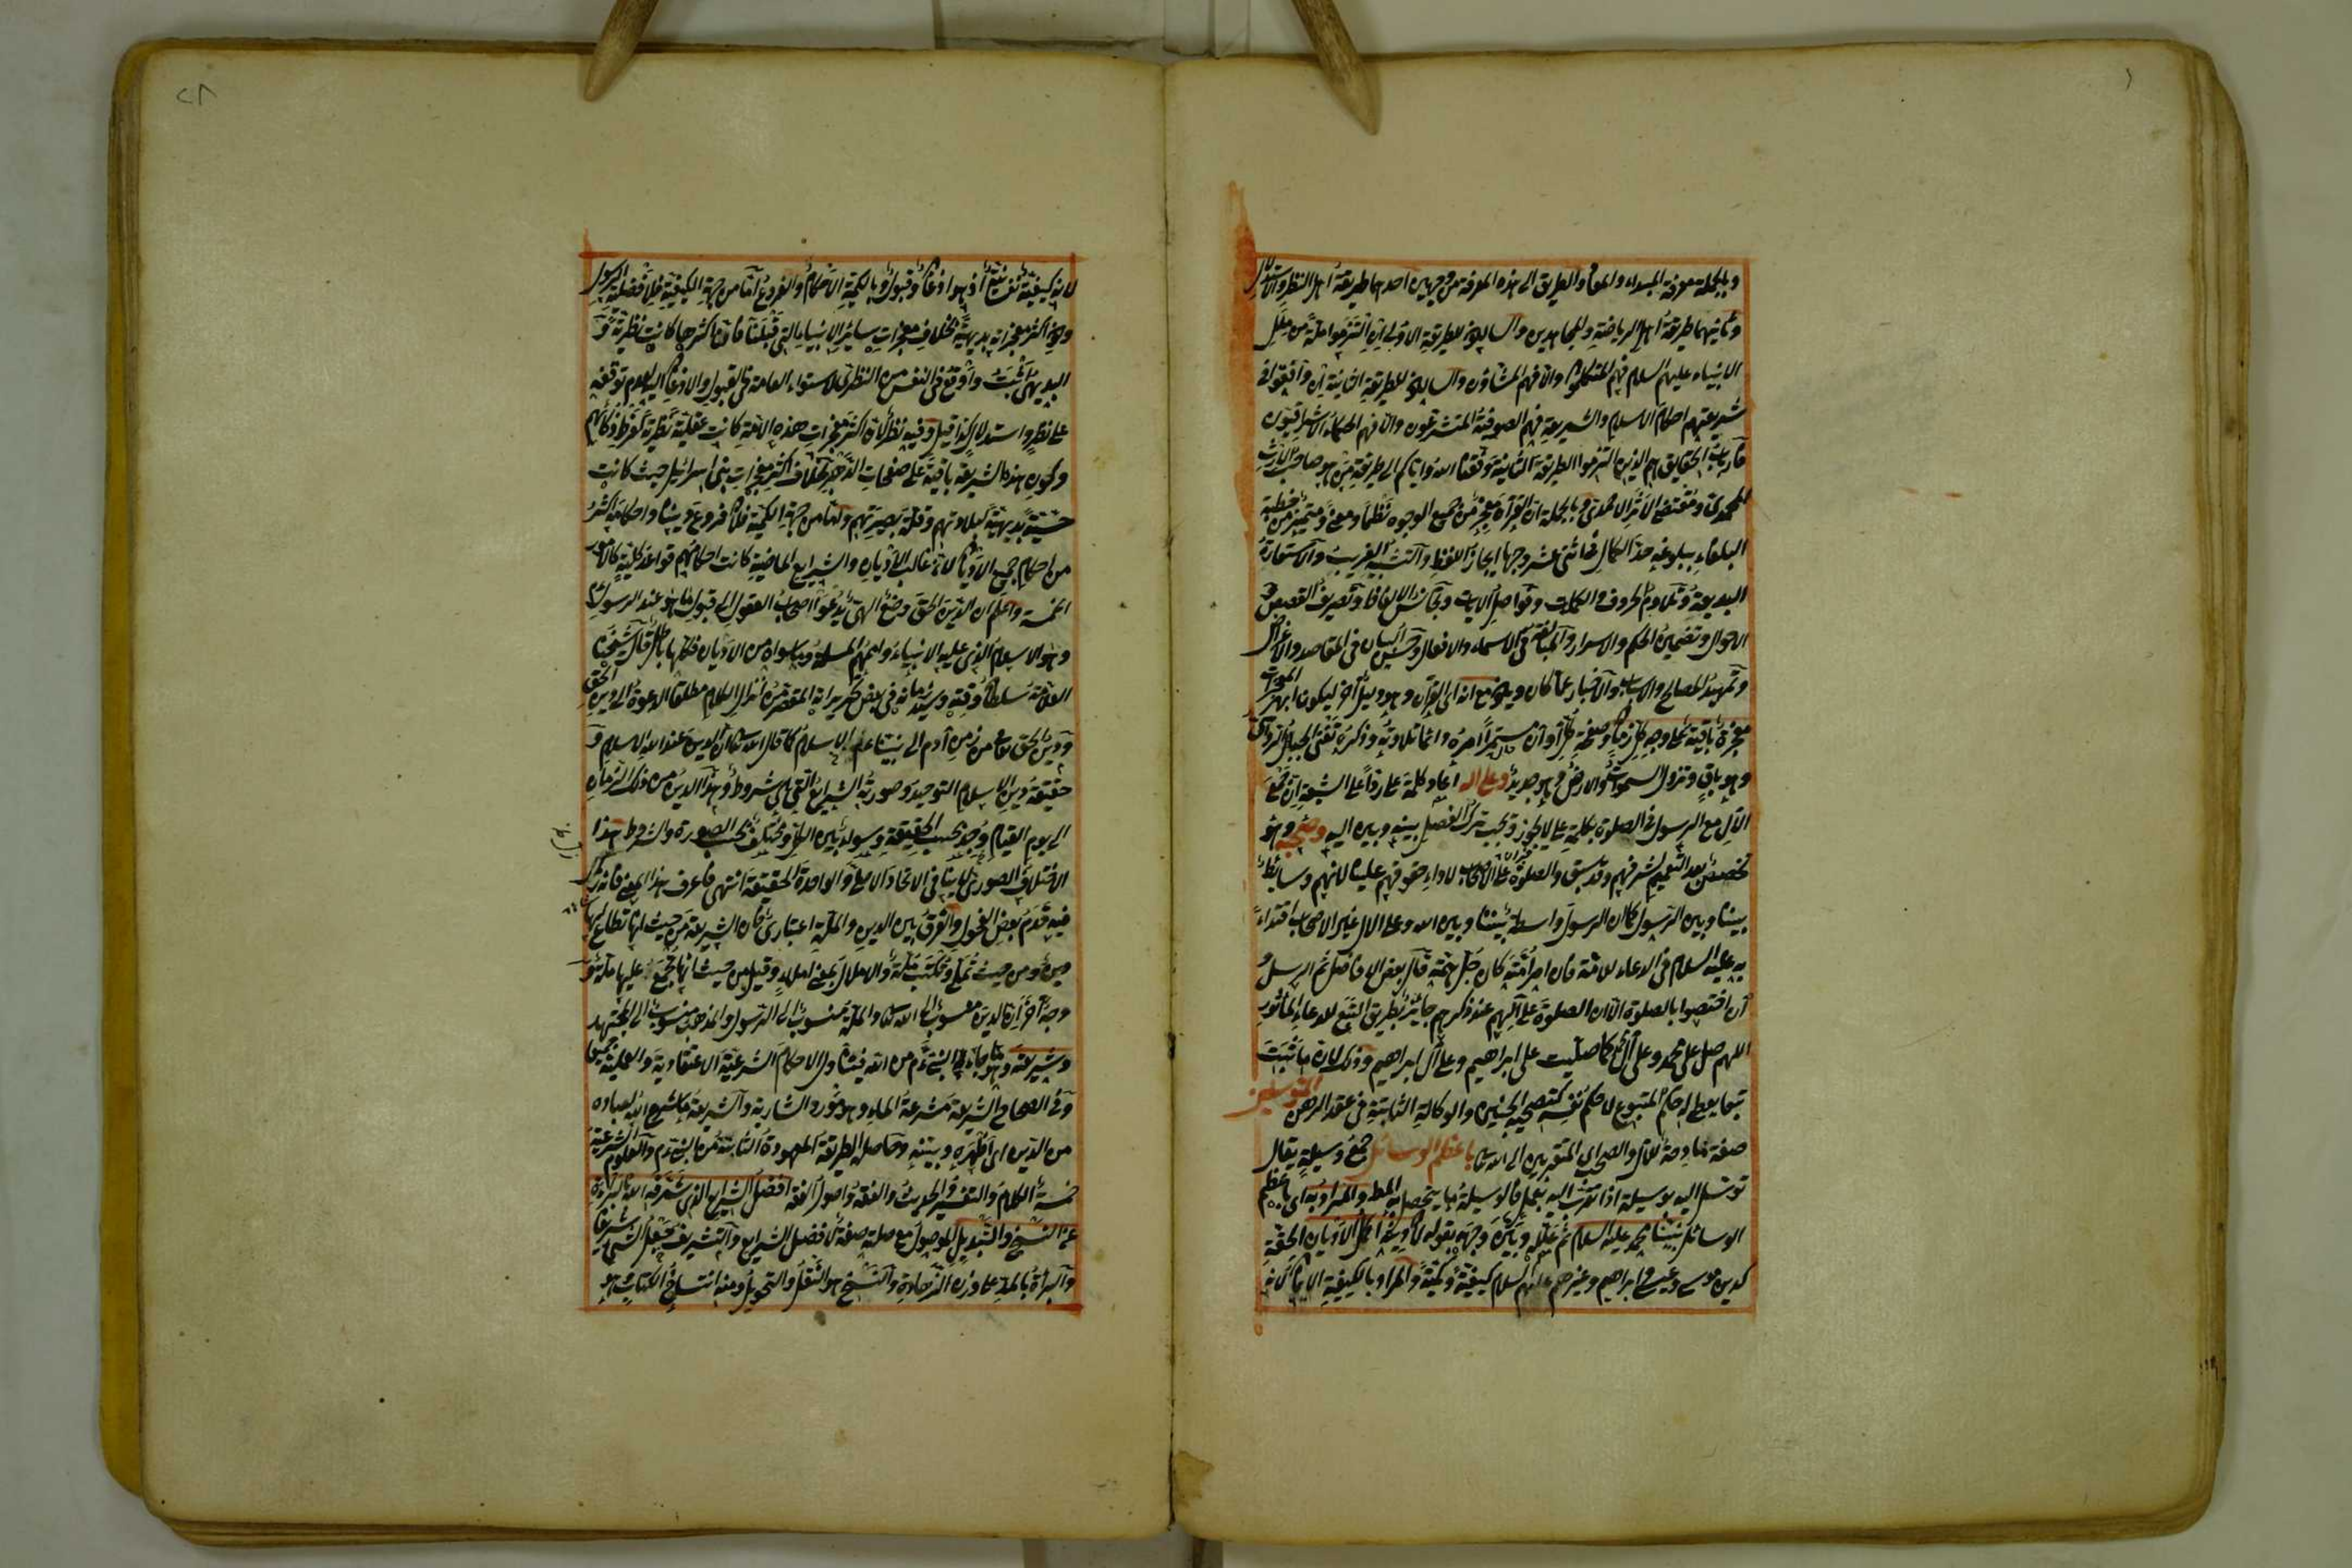 وبالجملة معرفة المبداء والمعاد والطريق الى هذه المعرفة من وجهين احدهما طريقة اهل النظر والاستدلال
وثانيهما طريقة اهل الرياضة والمجاهدين والسالكون للطريقة الاولى ان التزموا ملة من ملل
الانبياء عليهم السلام فهم المتكلمون والا فهم المشاؤن والسالكون للطريقة الثانية ان وافقوا فى
شريعتهم احكام الاسلام والشريعة فهم الصوفية المتشرعون والا فهم الحكماء الاشراقيون
فارباب الحقايق هم الذين التزموا الطريقة الثانية وفقنا الله واياكم الى طريقة من هو صاحب الارث
المحمدى ومقتفى الاثر الاحمدى وبالجملة ان القرآن معجز من جميع الوجوه نظما ومعنى ومتميز من خطبة
البلغاء ببلوغه حد الكمال فى اثنى عشر وجها ايجاز اللفظ والتشبيه الغريب والاستعارة
البديعة وتلاوم الحروف والكلمات وفواصل الايات وتجانس الالفاظ وتصريف القصص و
الاحوال وتضمين الحكم والاسرار والمبالغة فى الاسماء والافعال وحسن البيان فى المقاصد والاغراض
وتمهيد المصالح والاسباب والاخبار عما كان ويكون مع انه اى القرآن وهو دليل آخر ليكون ابهر المعجزات
معجزة باقية على وجه كل زمان وصفحة كل اوان مستمرا امره دائما تلاوته وذكره تفنى الجبال الرواسى
وهو باق وتزول السموات والارض وهو جديد وعلى اله اعاد كلمة على ردا على الشيعة ان جمع
الال مع الرسول فى الصلوة بكلمة على لا يجوز ويجب ترك الفصل بينه وبين اله وصحبه وهو
تخصيص بعد التعميم لشرفهم وقد سبق والصلوة على الاصحاب لاداء حقوقهم علينا لانهم وسايط
بيننا وبين الرسول كما ان الرسول واسطة بيننا وبين الله وعلى الال غير الاصحاب اقتداء
به عليه السلام فى الدعاء للامة فان امر امته كان جل همته قال بعض الافاضل ثم الرسل و
ان اختصوا بالصلوة الا ان الصلوة على آلهم عند ذكرهم جايز بطريق التبع للدعاء المأثور
اللهم صل على محمد وعلى آل محمد كما صليت على ابراهيم وعلى آل ابراهيم وذلك لان ما ثبت
تبعا يعطى له حكم المتبوع لا حكم نفسه كتضحية الجنين والوكالة الثابتة فى عقد الرهن المتوسلين
صفة مادحة للآل والصحب اى المتقربين الى الله تعالى باعظم الوسائل جمع وسيلة يقال
توسل اليه بوسيلة اذا تقرب اليه بعمل فالوسيلة ما يتحصل به المط والمراد به اى باعظم
الوسائل نبينا محمد عليه السلام ثم علله وبين وجهه بقوله لان دينه اكمل الاديان الحقة
كدين موسى وعيسى وابراهيم وغيرهم عليهم السلام كيفية وكمية والمراد بالكيفية الايمان لانه
لانه كيفية نفسانية اذ هو اذعان وقبول وبالكمية الاحكام والفروع اما من جهة الكيفية فلافضلية الرسول
وكون اكثر معجزاته بديهية بخلاف معجزات سائر الانبياء التى قبلنا فان اكثرها كانت نظرية و
البديهى اثبت واوقع فى النفس من النظرى لاستواء العامة فى القبول والاذعان اليه لعدم توقفه
على نظر واستدلال كذا قيل وفيه نظر لان اكثر معجزات هذه الامة كانت عقلية نظرية لفرط ذكائهم
وكون هذه الشريعة باقية على صفحات الدهر بخلاف اكثر معجزات بنى اسرائيل حيث كانت
حسية بديهية لبلادتهم وقلة بصيرتهم واما من جهة الكمية فلان فروع ديننا واحكامه اكثر
من احكام جميع الاديان لان غالب الاديان والشرايع الماضية كانت احكامهم قواعد كلية كالامور
الخمسة واعلم ان الدين الحق وضع الهى يدعو اصحاب العقول الى قبول ما هو عند الرسول
وهو الاسلام الذى عليه الانبياء واممهم المسلمة وما سواه من الاديان فكلها باطل قال شيخنا
العلامة سلطان وقته وسيد زمانه فى بعض تحريراته المقصر من انزال الكلام مطلقا الدعوة الى الدين الحق
ودين الحق من زمن آدم الى نبينا عم الاسلام كما قال الله تعالى ان الدين عند الله الاسلام و
حقيقة دين الاسلام التوحيد وصورته الشرايع التى هى شروط وهذا الدين من ذلك الزمان
الى يوم القيام وجد بحسب الحقيقة وسواء بين الكل ومختلف بحسب الصورة والشروط هذا
الاختلاف الصورى لا ينافى الاتحاد الاصلى والواحدة الحقيقة انتهى فاعرف هذا المعنى فانه زل
فيه قدم بعض الفحول والفرق بين الدين والملة اعتبارى فان الشريعة من حيث انها تطاع لها
دين ومن حيث تملى وتكتب ملة والاملال بمعنى املاء وقيل من حيث انها تجمع عليها ملة و
وجه آخر ان الدين منسوب الى الله تعالى والملة منسوب الى الرسول والمذهب منسوب الى المجتهد
وشريعته وهو ما جاء به النبى عم من الله فيتناول الاحكام الشرعية الاعتقادية والعملية جميعا
وفى الصحاح الشريعة مشرعة الماء وهو مورد الشاربة والشريعة ما شرع الله لعباده
من الدين اى اظهره وبينه وحاصله الطريقة المعهودة الثابتة من النبى عم والعلوم الشرعية
خمسة الكلام والتفسير والحديث والفقه واصول الفقه افضل الشرايع الذى شرفه الله بالبراءة
عن النسخ والتبديل الموصول مع صلته صفة لافضل الشرايع والتشريف جعل الشئ شريفا
والبراءة بالمد على وزن الزهادة والنسخ هو النقل والتحويل ومنه انتساخ الكتاب هو